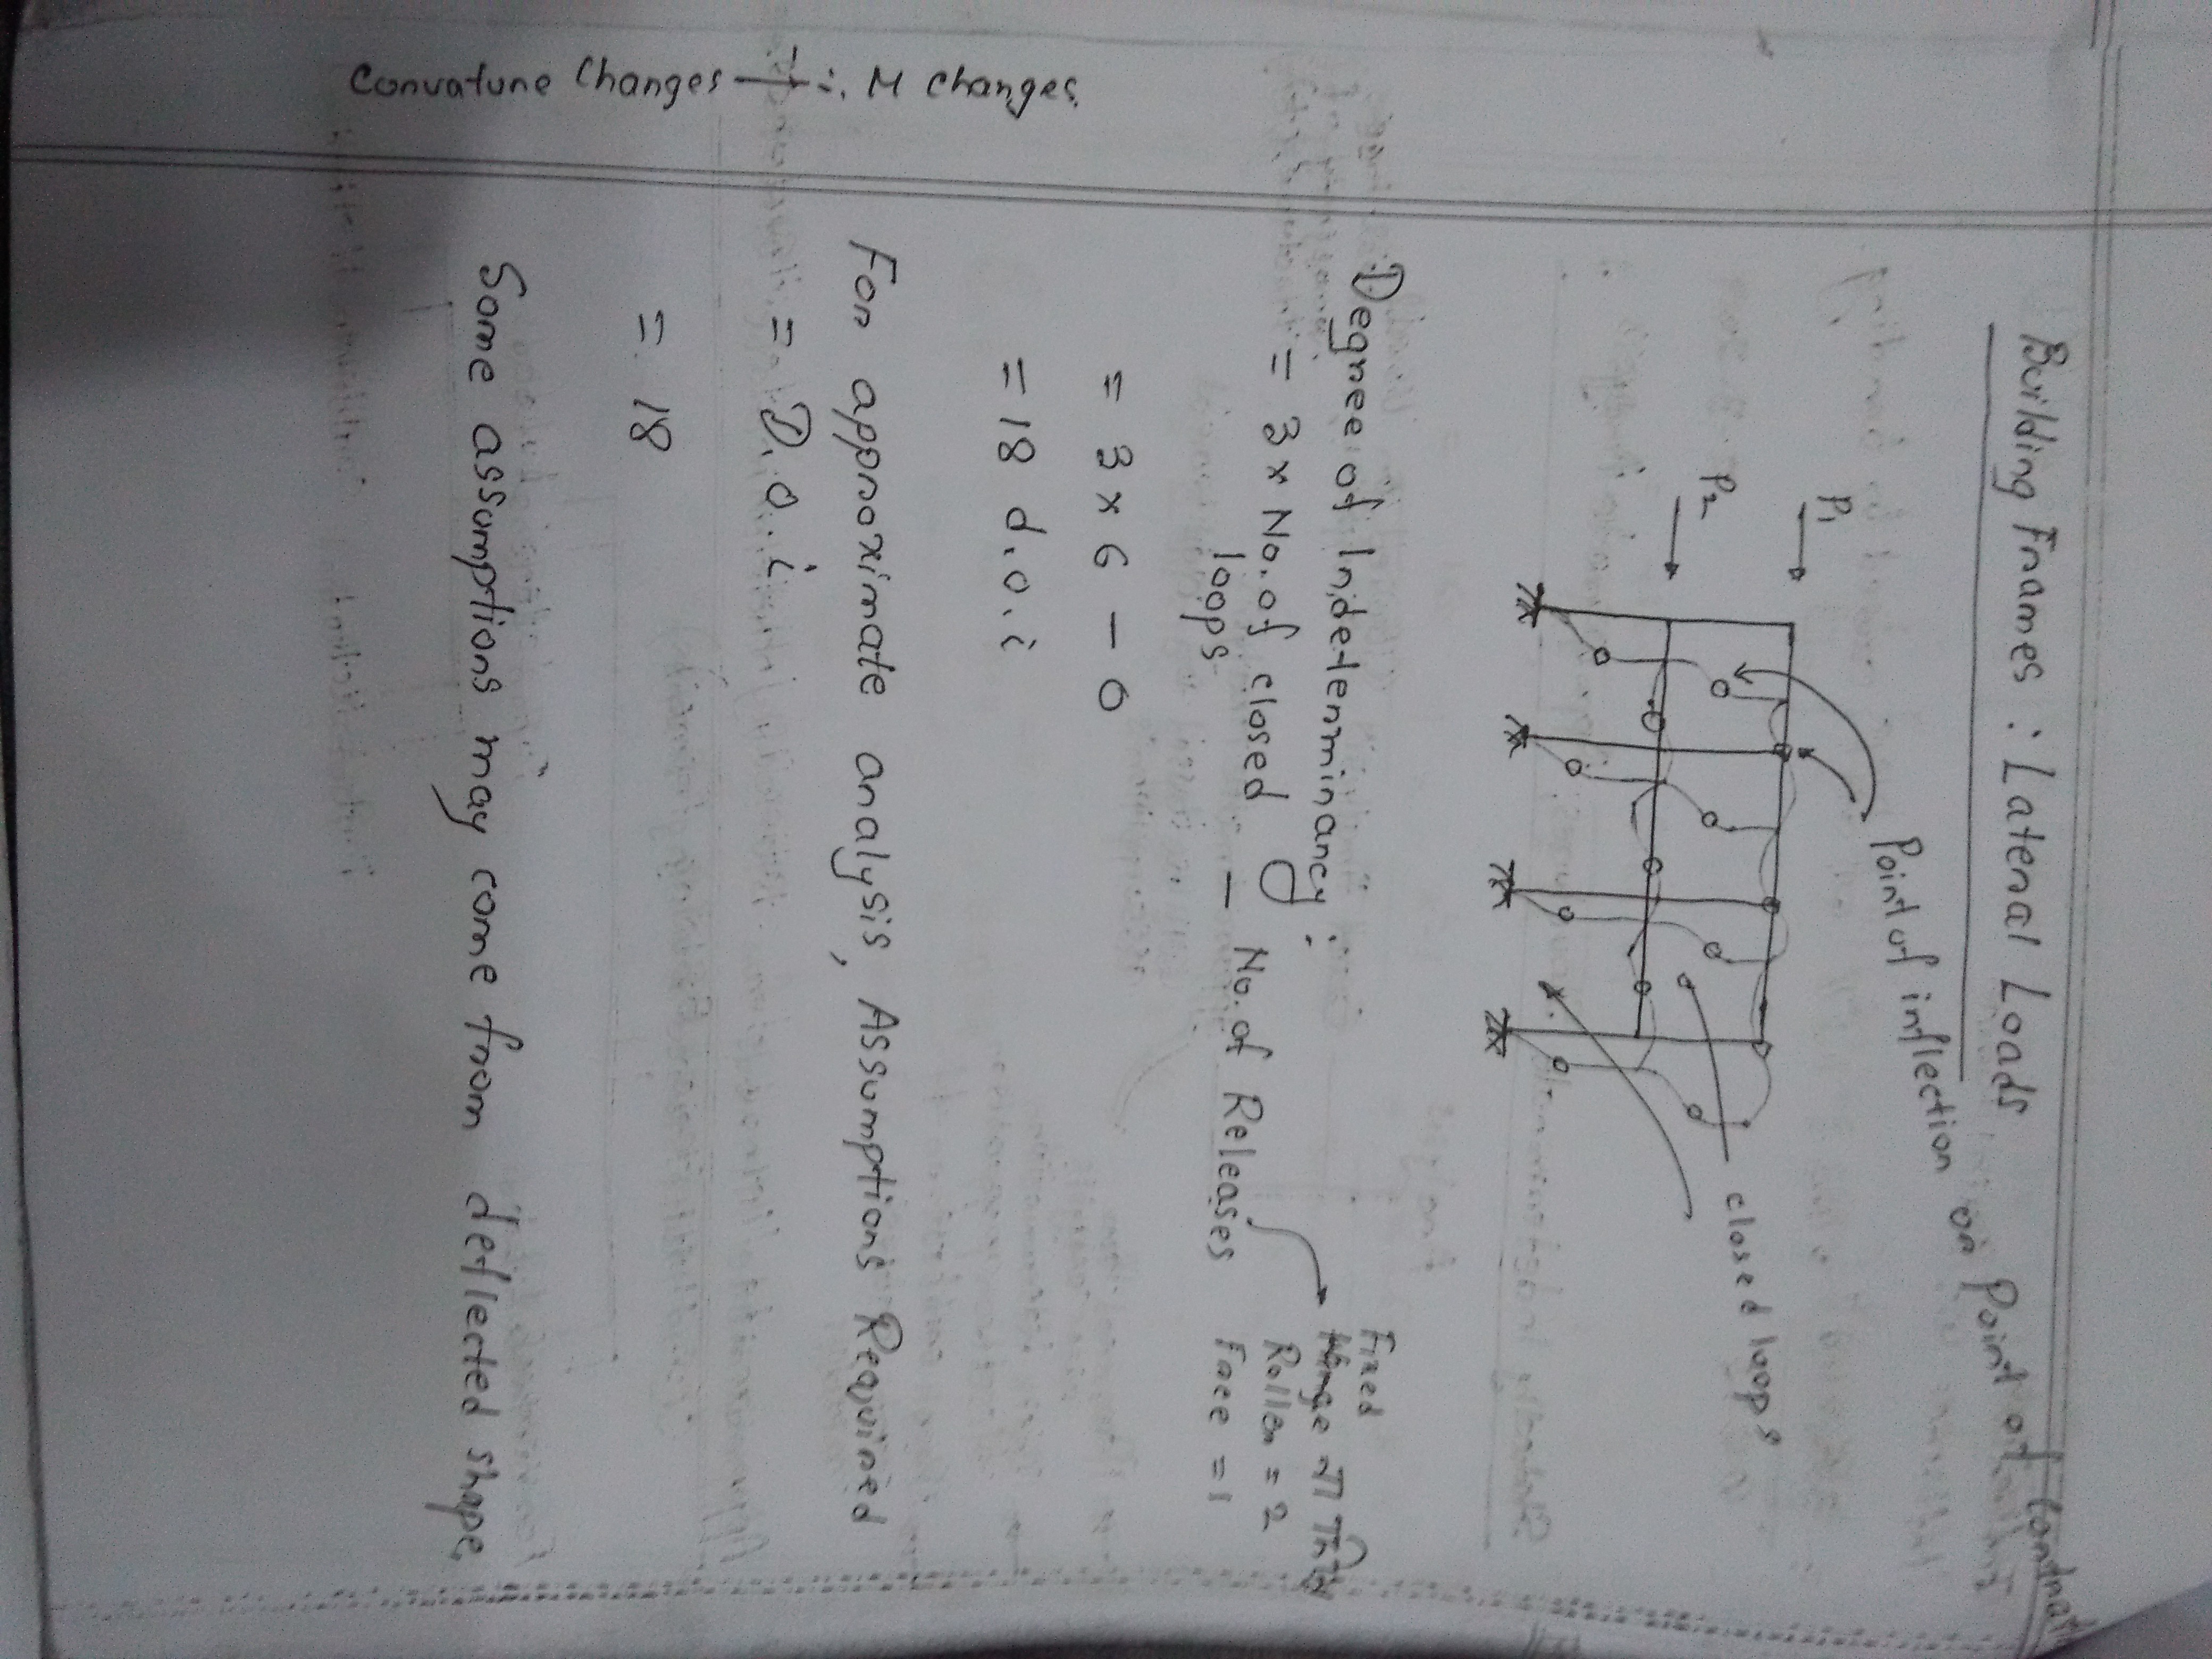 Building Frames : Lateral Loads
Point of inflection or Point of
P1
P2
closed loops
Degree of Indeterminancy :
= 3 x No. of closed loops — No. of Releases
Fixed
Roller = 2
Free = 1
= 3 x 6 - 0
= 18 d.o.i
For approximate analysis, Assumptions Required
= D.o.i
= 18
Some assumptions may come from deflected shape
Convature Changes ∴ M changes.